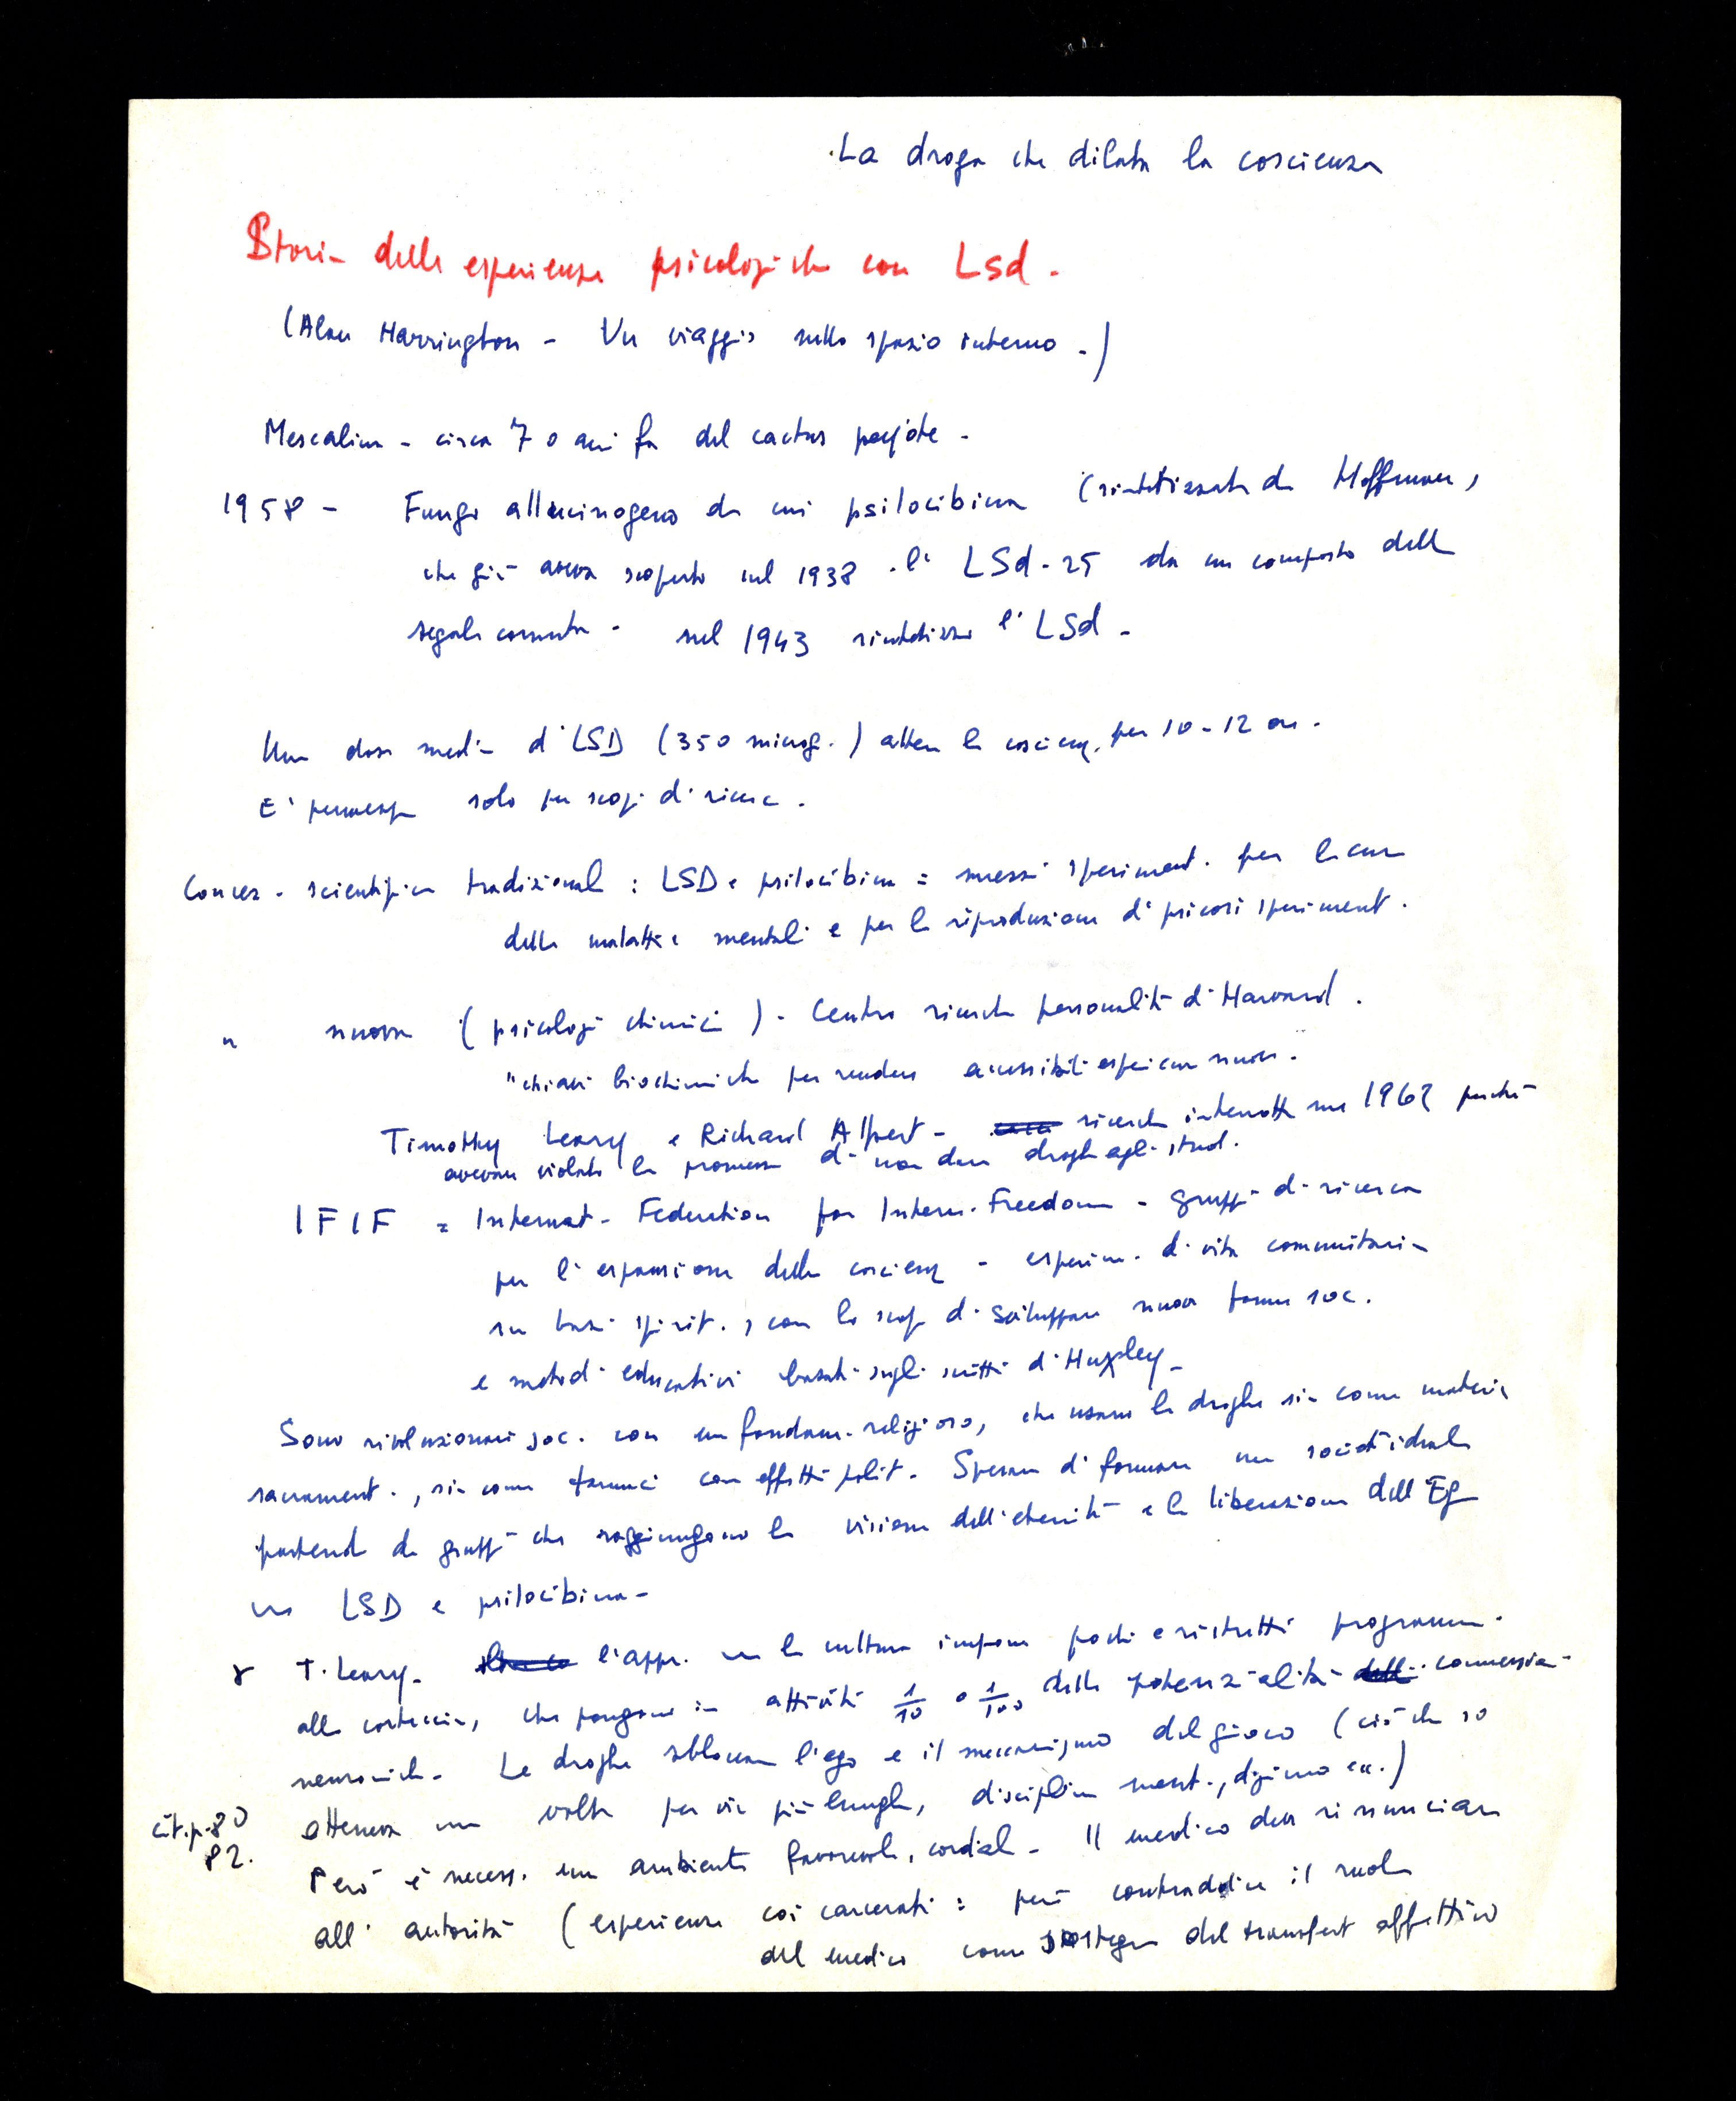 La droga che dilata la coscienza
Storia delle esperienze psicologiche con Lsd.
(Alan Harrington - Un viaggio nello spazio interno.)
Mescalina - circa 70 anni fa dal cactus peyote -
1958 - Fungo allucinogeno da cui psilocibina (sintetizzata da Hoffmann,
che già aveva scoperto nel 1938 l'LSd-25 da un composto della
segale cornuta - nel 1943 sintetizza l'LSd -
Una dose media di LSD (350 microg.) altera la coscienza per 10-12 ore.
E' permesso solo per scopi di ricerca.
Concez. scientifica tradizionale : LSD e psilocibina = mezzi speriment. per la cura
delle malattie mentali e per la riproduzione di psicosi speriment.
" nuova (psicologi chimici) - Centro ricerche personalità di Harvard.
"chiavi biochimiche per rendere accessibili esperienze nuove.
Timothy Leary e Richard Alpert - ricerche interrotte nel 1962 perché
avevano violato la promessa di non dare droghe agli stud.
IFIF = Internat. Federation for Intern. Freedom - gruppi di ricerca
per l'espansione della coscienza - esperim. di vita comunitaria
su basi spirit., con lo scopo di sviluppare nuove forme soc.
e metodi educativi basati sugli scritti di Huxley -
Sono rivoluzionari soc. con un fondam. religioso, che usano le droghe sia come materia
sacrament., sia come farmaci con effetti polit. Sperano di formare una società ideale
partendo da gruppi che raggiungono la visione dell'eternità e la liberazione dell'Ego
LSD e psilocibina -
T. Leary - l'appr. la cultura impone pochi e ristretti programm.
alla corteccia, che pongono in attività 1/10 o 1/100 delle potenzialità connessioni
neuroniche. Le droghe sbloccano l'ego e il meccanismo del gioco (ciò che so
otteneva una volta per vie più lunghe, disciplina ment., digiuno ecc.)
cit. p. 80
82.
Però è necess. un ambiente favorevole, cordiale - Il medico deve rinunciare
all'autorità (esperienze coi carcerati : però contraddice il ruolo
del medico come sostegno del transfert affettivo